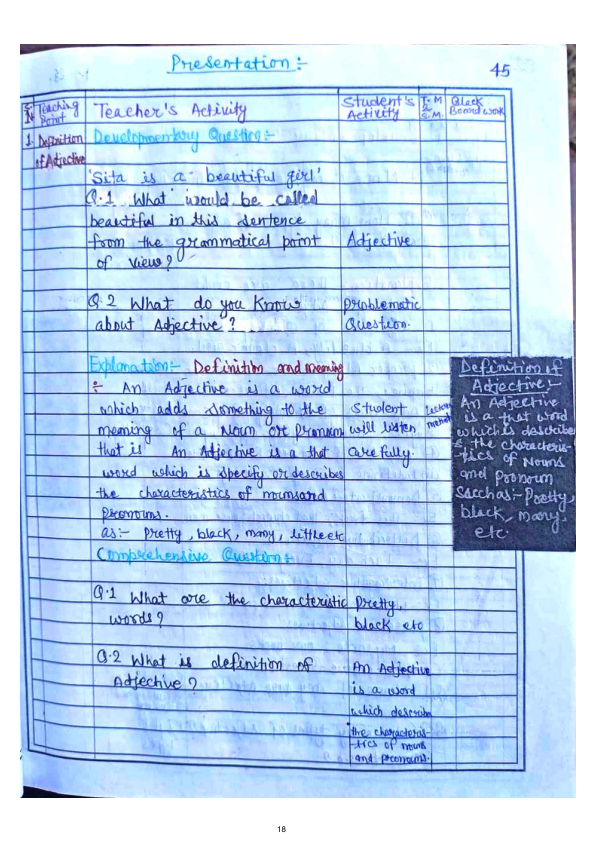 Presentation :-
45
S. N. Teaching Point
Teacher's Activity
Student's Activity
T.M & S.M.
Black Board work
1. Definition of Adjective
Developmentary Question:-
'Sita is a beautiful girl'
Q.1 What would be called
beautiful in this sentence
from the grammatical point
of view?
Adjective
Q.2 What do you Know
about Adjective ?
Problematic
Question.
Explanation:- Definition and meaning
:- An Adjective is a word
which adds something to the
meaning of a Noun or Pronoun
that is An Adjective is a that
word which is specify or describes
the characteristics of nounsand
pronouns.
as:- pretty, black, many, little etc
Student
will listen
carefully.
Lecture
method
Definition of
Adjective:-
An Adjective
is a that word
which is describe
s the characteris-
tics of Nouns
and Pronoun
Such as:- Pretty,
black, many,
etc.
Comprehensive Question:-
Q.1 What are the characteristic
words?
Pretty,
black etc
Q.2 What is definition of
Adjective ?
An Adjective
is a word
which describe
the characteras-
tics of nouns
and pronouns.
18